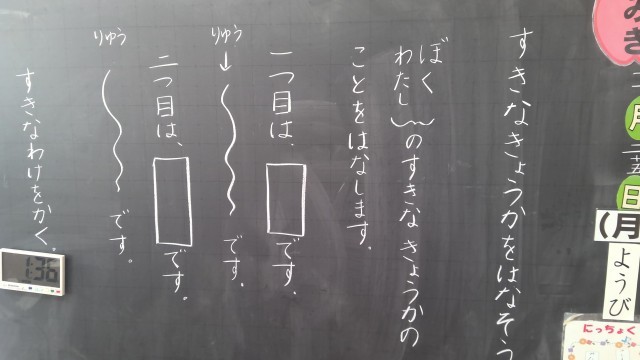 すきなきょうかをはなそう
ぼく
わたし
のすきなきょうかの
ことをはなします。
一つ目は、
です。
りゆう
です。
二つ目は、
です。
りゆう
です。
すきなわけをかく。
1:36
月
日
(月
ようび
にっちょく